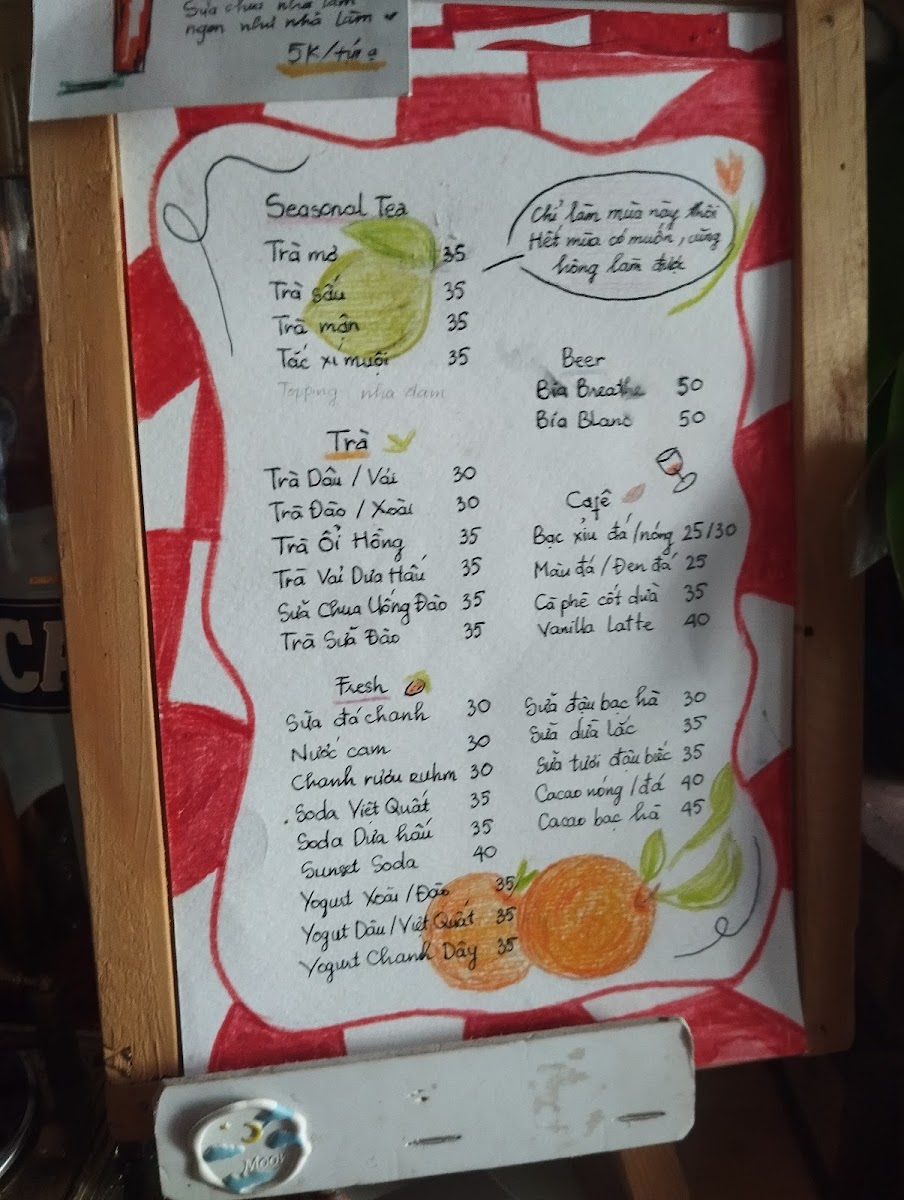 Sữa chua nhà làm
ngon như nhà làm
5K/túi ạ
Seasonal Tea
Trà mơ 35
Trà sấu 35
Trà mận 35
Tắc xí muội 35
Topping nha đam
Chỉ làm mùa này thôi
Hết mùa có muốn, cũng
hông làm được
Trà
Trà Dâu / Vải 30
Trà Đào / Xoài 30
Trà Ổi Hồng 35
Trà Vải Dưa Hấu 35
Sữa Chua Uống Đào 35
Trà Sữa Đào 35
Beer
Bia Breathe 50
Bia Blanc 50
Cafê
Bạc xỉu đá/nóng 25/30
Màu đá/Đen đá 25
Cà phê cốt dừa 35
Vanilla Latte 40
Fresh
Sữa đá chanh 30
Nước cam 30
Chanh rượu ruhm 30
Soda Việt Quất 35
Soda Dưa hấu 35
Sunset Soda 40
Yogurt Xoài / Đào 35
Yogut Dâu / Việt Quất 35
Yogurt Chanh Dây 35
Sữa đậu bạc hà 30
Sữa dừa lắc 35
Sữa tươi đậu biếc 35
Cacao nóng / đá 40
Cacao bạc hà 45